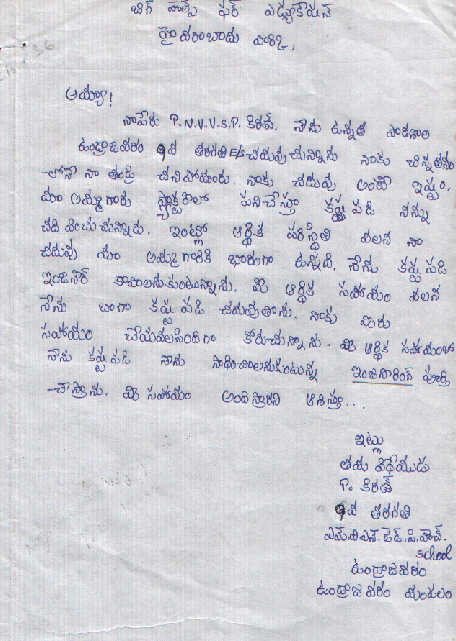 బిగ్ హెల్ప్ ఫర్ ఎడ్యూకేషన్
హైదరాబాదు
అయ్యా!
నాపేరు P.N.V.V.S.P. కిరణ్. నేను ఉన్నత పాఠశాల
ఉండ్రాజవరం 9వ తరగతి E/s చదువుచున్నాను నాకు చిన్నతనం
లోనే నా తండ్రి చనిపోయారు. నాకు చదువు అంటే ఇష్టం.
మా అమ్మ గారు ఫ్యాక్టరీలో పనిచేస్తూ కష్ట పడి నన్ను
చదివించుచున్నది. ఇంట్లో ఆర్థిక పరిస్థితి వలన నా
చదువు మా అమ్మ గారికి భారంగా ఉన్నది. నేను కష్ట పడి
ఇంజనీర్ కావాలనుకుంటున్నాను. మీ ఆర్థిక సహాయం వలన
నేను బాగా కష్ట పడి చదువుతాను. నాకు మీరు
సహాయం చేయవలసిందిగా కోరుచున్నాను. మీ ఆర్థిక సహాయంతో
నేను కష్ట పడి నేను సాధించాలనుకుంటున్న ఇంజనీరింగ్ పూర్తి
చేస్తాను. మీ సహాయం అందిస్తారని ఆశిస్తూ...
ఇట్లు
తమ విధేయుడు
P. కిరణ్
9వ తరగతి
ఎమ్.వి.ఎన్.జెడ్.పి.హెచ్.
school
ఉండ్రాజవరం
ఉండ్రాజవరం మండలం